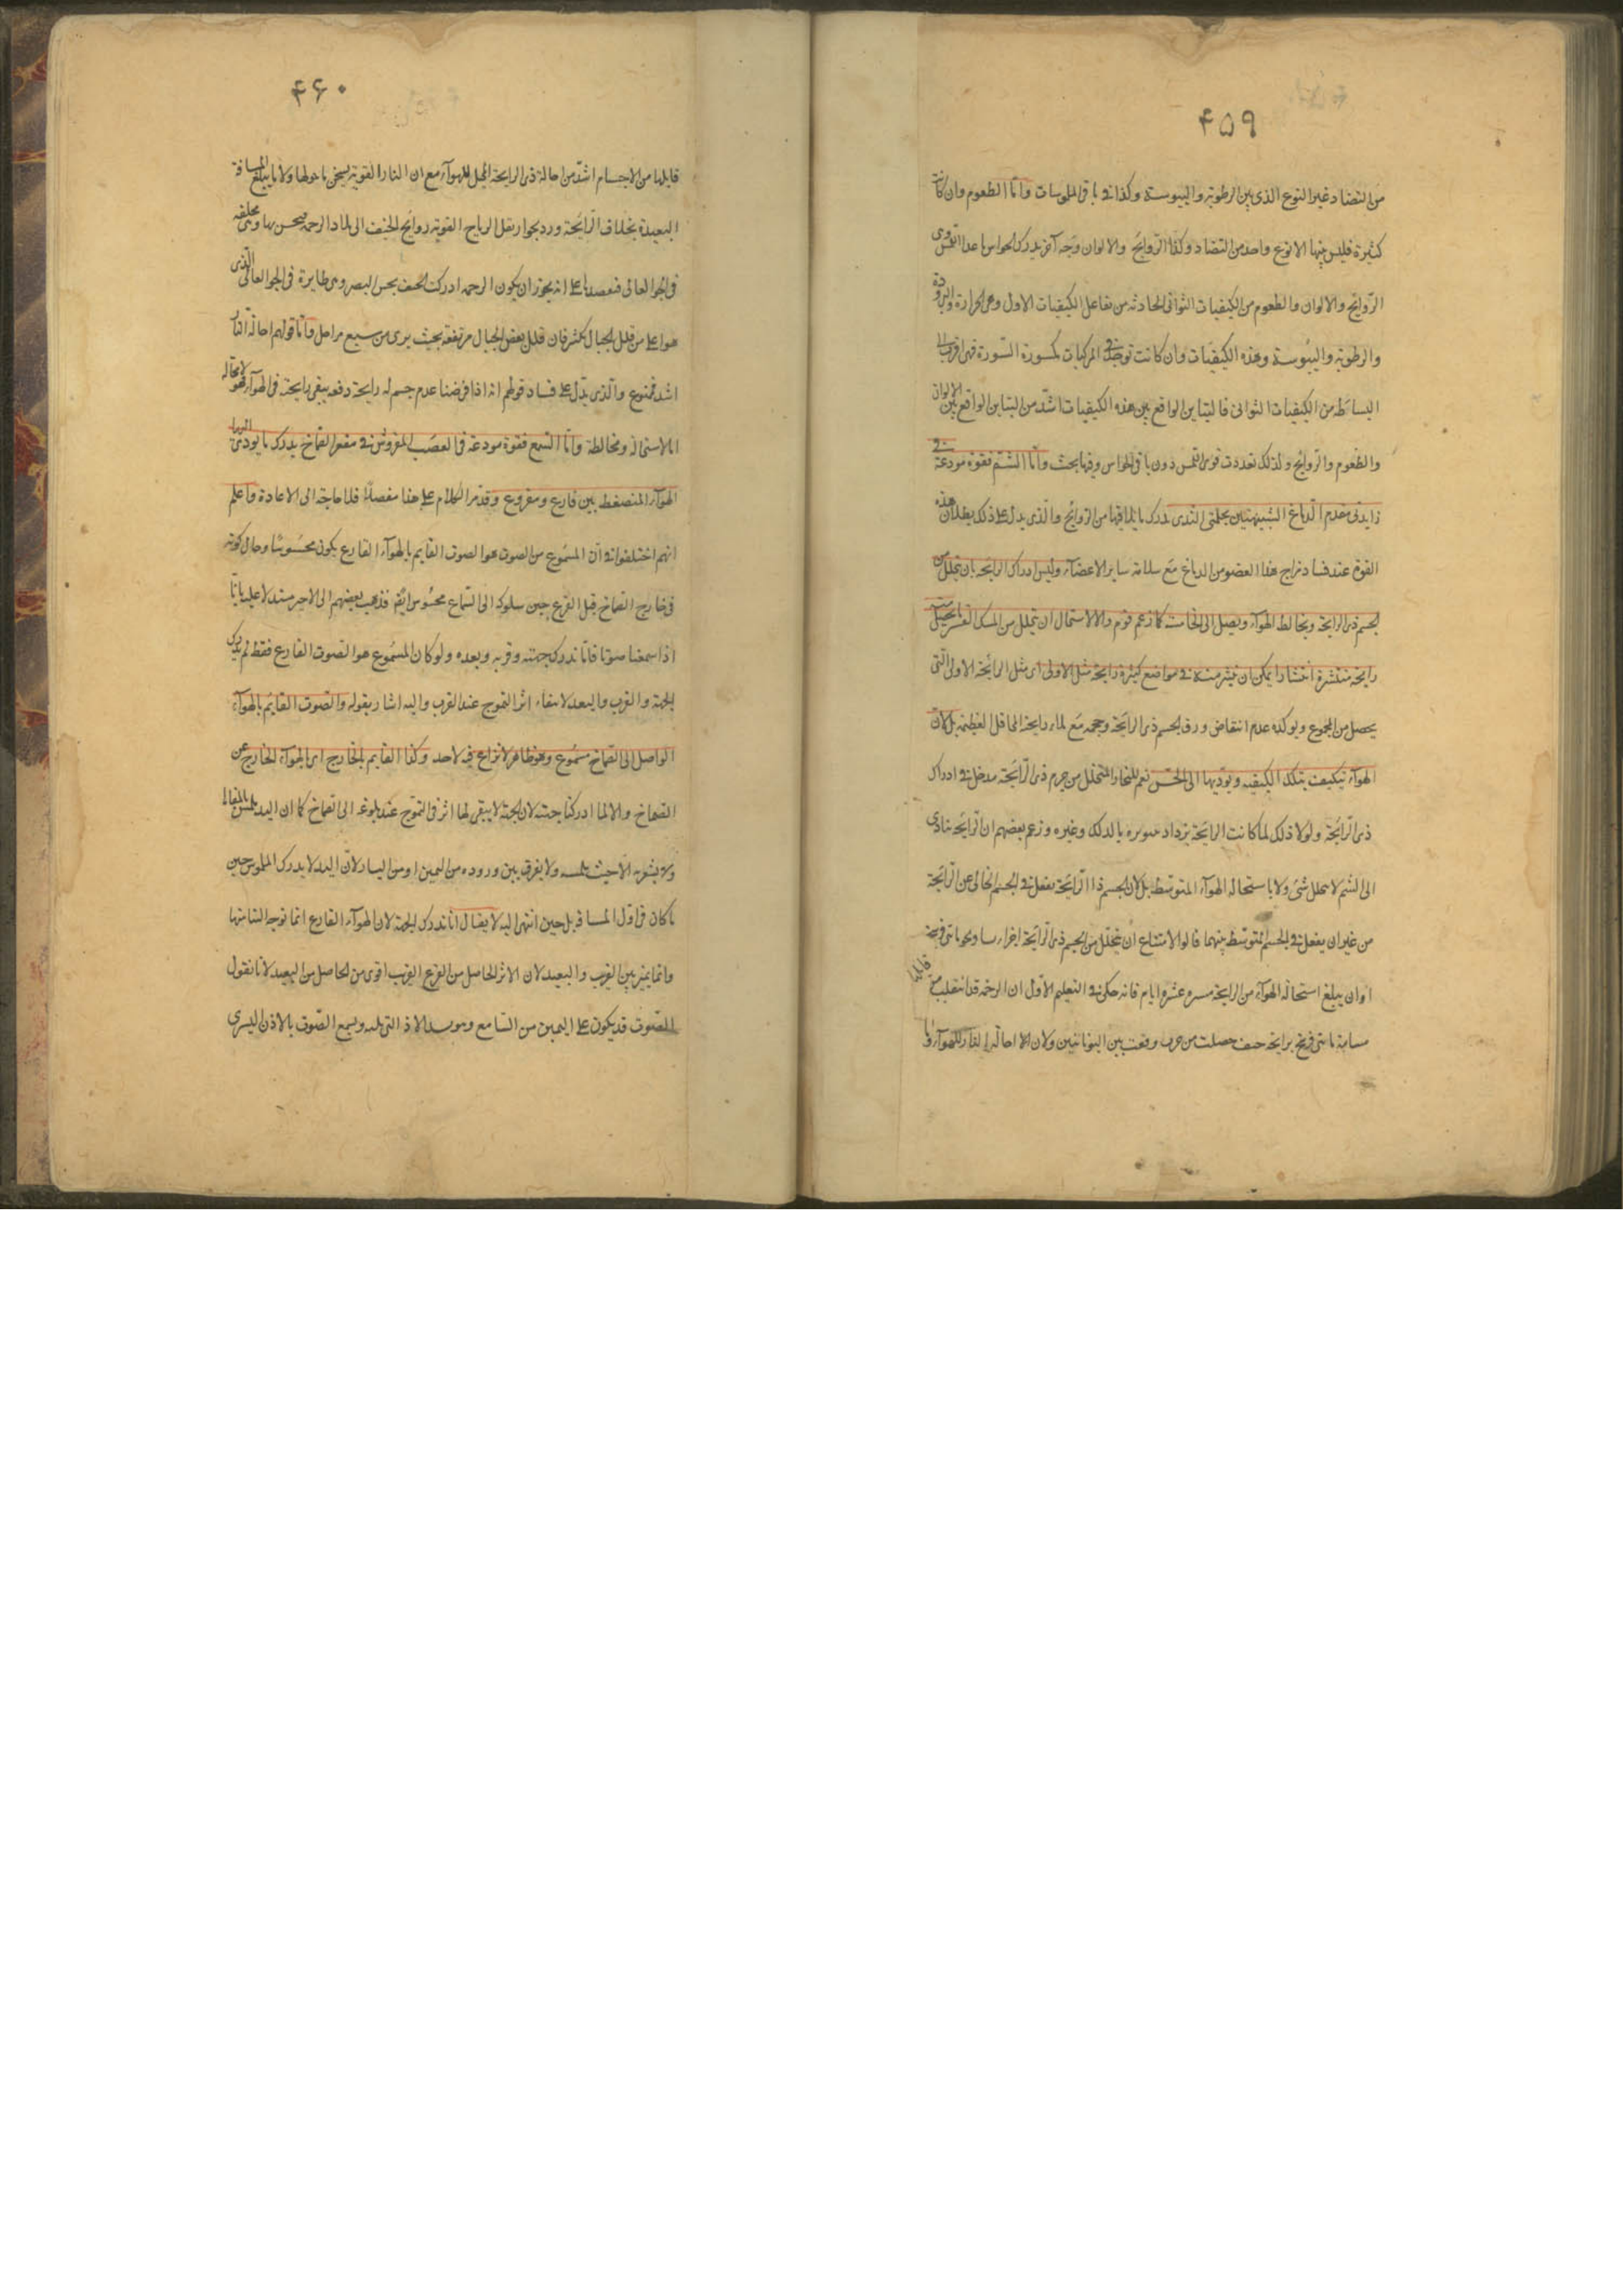 ۴۵۹
من التضاد غير النوع الذى بين الرطوبة واليبوسة وكذا فى باقى الملموسات وامّا الطعوم وان كانت
كثيرة فليس بينها الا نوع واحد من التضاد وكذا الرّوايح والالوان وجه آخر يدرك الحواس ما عدا اللمس وى
الرّوايح والالوان والطعوم من الكيفيات الثوانى الحادثه من تفاعل الكيفيات الاول وهى الحرارة والبرودة
والرطوبة واليبوسة وهذه الكيفيات وان كانت توجد فى المركبات مكسورة السّورة فهى اقرب الى
البساطه من الكيفيات الثوانى فالتباين الواقع بين هذه الكيفيات اشدّ من التباين الواقع بين الالوان
والطعوم والرّوايح ولذلك تعددت قوى اللمس دون باقى الحواس وفيها بحث وامّا الشمّ فقوة مودعة فى
زايدتى مقدم الدماغ الشبيهتين بحلمتى الثدى يدرك ما يلاقيها من الروايح والذى يدل على ذلك بطلان هذه
القوة عند فساد مزاج هذا العضو من الدماغ مع سلامة ساير الاعضآء وليس ادراك الرايحه بان يتحلل من
الجسم ذى الرايحة ويخالط الهوآء ويصل الى الخاصة كما زعم قوم والا لاستحال ان يتحلل من المسك اليسير ما يحصل
رايحة منتشرة انتشارا يمكن ان ينشر منه فى مواضع كثيرة رايحة مثل الاولى اى مثل الرائحة الاولى الّتى
يحصل من المجموع ويوكده عدم انتقاض ورق الجسم ذى الرايحة وحجمه مع رايحة المحافل العظيمة بل لان
الهوآء يتكيف بتلك الكيفيه ويوديها الى الحسّ نعم للبخار المتحلل من جرم ذى الرّايحة مدخل فى ادراك
ذى الرّايحة ولولا ذلك لما كانت الرايحة تزداد بالدلك وغيره وزعم بعضهم ان الرّايحه تتادى
الى الشم لا بتحلل شئ ولا باستحالة الهوآء المتوسط بل لان الجسم ذا الرّايحة يفعل فى الجسم الخالى عن الرّايحة
من غير ان يفعل فى الجسم المتوسّط بينهما قالوا لامتناع ان يتحلل من الجسم ذى الرّايحة اجزاء نحو ماتى فرسخ
او ان يبلغ استحالة الهوآء من الرايحة مسيرة عشرة ايام فانه حكى فى التعليم الاوّل ان الرخمه قد انتقلت من
مسافة ماتى فرسخ برايحة جيف حصلت من حرب وقعت بين اليونانيين ولان احالة النار للهوآء وما
قابلها
۴۶۰
قابلها من الاجسام اشدّ من احالة ذى الرايحة للهوآء مع ان النار القوية تسخن ما حولها ولا تبلغ المسافة
البعيدة بخلاف الرّايحة ورد بجواز نقل الرياح القوية روايح الجيف الى بلاد الرخمه فيحس بها وهى محلقه
فى الجو العالى فتقصدها على انه يجوز ان يكون الرخمه ادركت الجيف بحس البصر وهى طايرة فى الجو العالى الّذى
هو اعلى من قلل الجبال بكثير فان قلل بعض الجبال مرتفعة بحيث يرى من سبع مراحل وامّا قولهم احالة النار
اشد فممنوع والّذى يدلّ على فساد قولهم انه اذا فرضنا عدم جسم له رايحة دفعه يبقى رايحته فى الهوآء فهو لا محاله
اما لاستحالة ومخالطة وامّا السمع فقوة مودعة فى العصب المفروش فى مقعر الصماخ يدرك ما يودى اليها
الهوآء المنضغط بين قارع ومقروع وقد مر الكلام على هذا مفصلا فلا حاجة الى الاعادة واعلم
انهم اختلفوا فى ان المسموع من الصوت هو الصوت القايم بالهوآء القارع يكون محسوسا وحال كونه
فى خارج الصماخ قبل القرع حين سلوكه الى السماع محسوس ايضا فذهب بعضهم الى الاخر مستدلا عليه بانّا
اذا سمعنا صوتا فانا ندرك جهته وقربه وبعده ولو كان المسموع هو الصوت القارع فقط لم يدرك
الجهة والقرب والبعد لانتفاء اثر التموج عند القرب واليه اشار بقوله والصوت القايم بالهوآء
الواصل الى الصماخ مسموع وهو ظاهر لا نزاع فيه لاحد وكذا القايم بالخارج اى بالهوآء الخارج عن
الصماخ والا لما ادركنا جهته لان الجهة لا يبقى لها اثر فى التموج عند بلوغه الى الصماخ كما ان اليد يلمس المقابل
ولا يشعر به الّا حيث يلمسه ولا يفرق بين وروده من اليمين او من اليسار لان اليد لا يدرك الملموس حين
ما كان فى اوّل المسافة بل حين انتهى اليه لا يقال انا ندرك الجهة لان الهوآء القارع انما توجه الينا منها
وانما يميز بين القريب والبعيد لان الاثر الحاصل من القرع القريب اقوى من الحاصل من البعيد لانا نقول
الصّوت قد يكون على اليمين من السّامع وهو يسد الاذن التى تليه ويسمع الصّوت بالاذن اليسرى